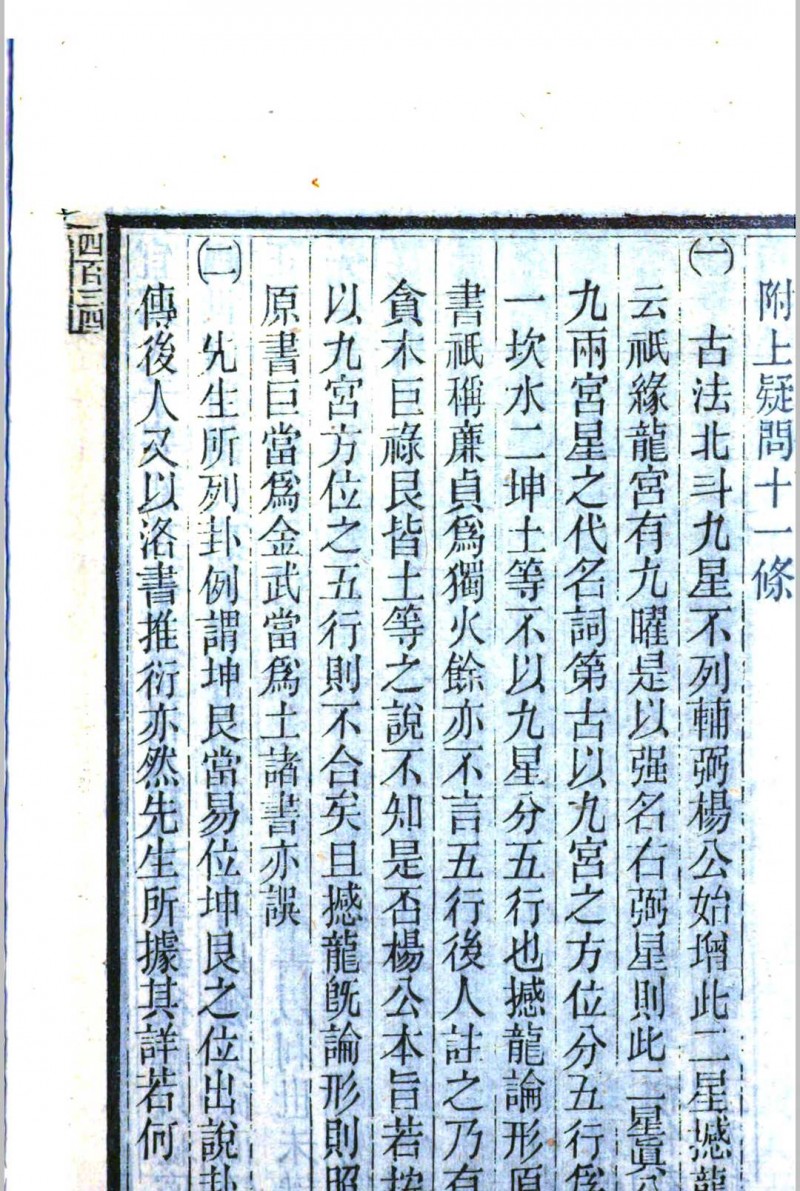 附上疑問十一條
(一)古法北斗九星不列輔弼楊公始增此二星撼龍
云祇緣龍宮有九曜是以强名右弼星則此二星眞
九兩宮星之代名詞第古以九宮之方位分五行爲
一坎水二坤土等不以九星分五行也撼龍論形原
書祇稱廉貞爲獨火餘亦不言五行後人註之乃有
貪木巨祿艮皆土等之說不知是否楊公本旨若按
以九宮方位之五行則不合矣且撼龍旣論形則
原書巨當爲金武當爲土諸書亦誤
(二)先生所列卦例謂坤艮當易位坤艮之位出說卦
傳後人又以洛書推衍亦然先生所據其詳若何
四百三四